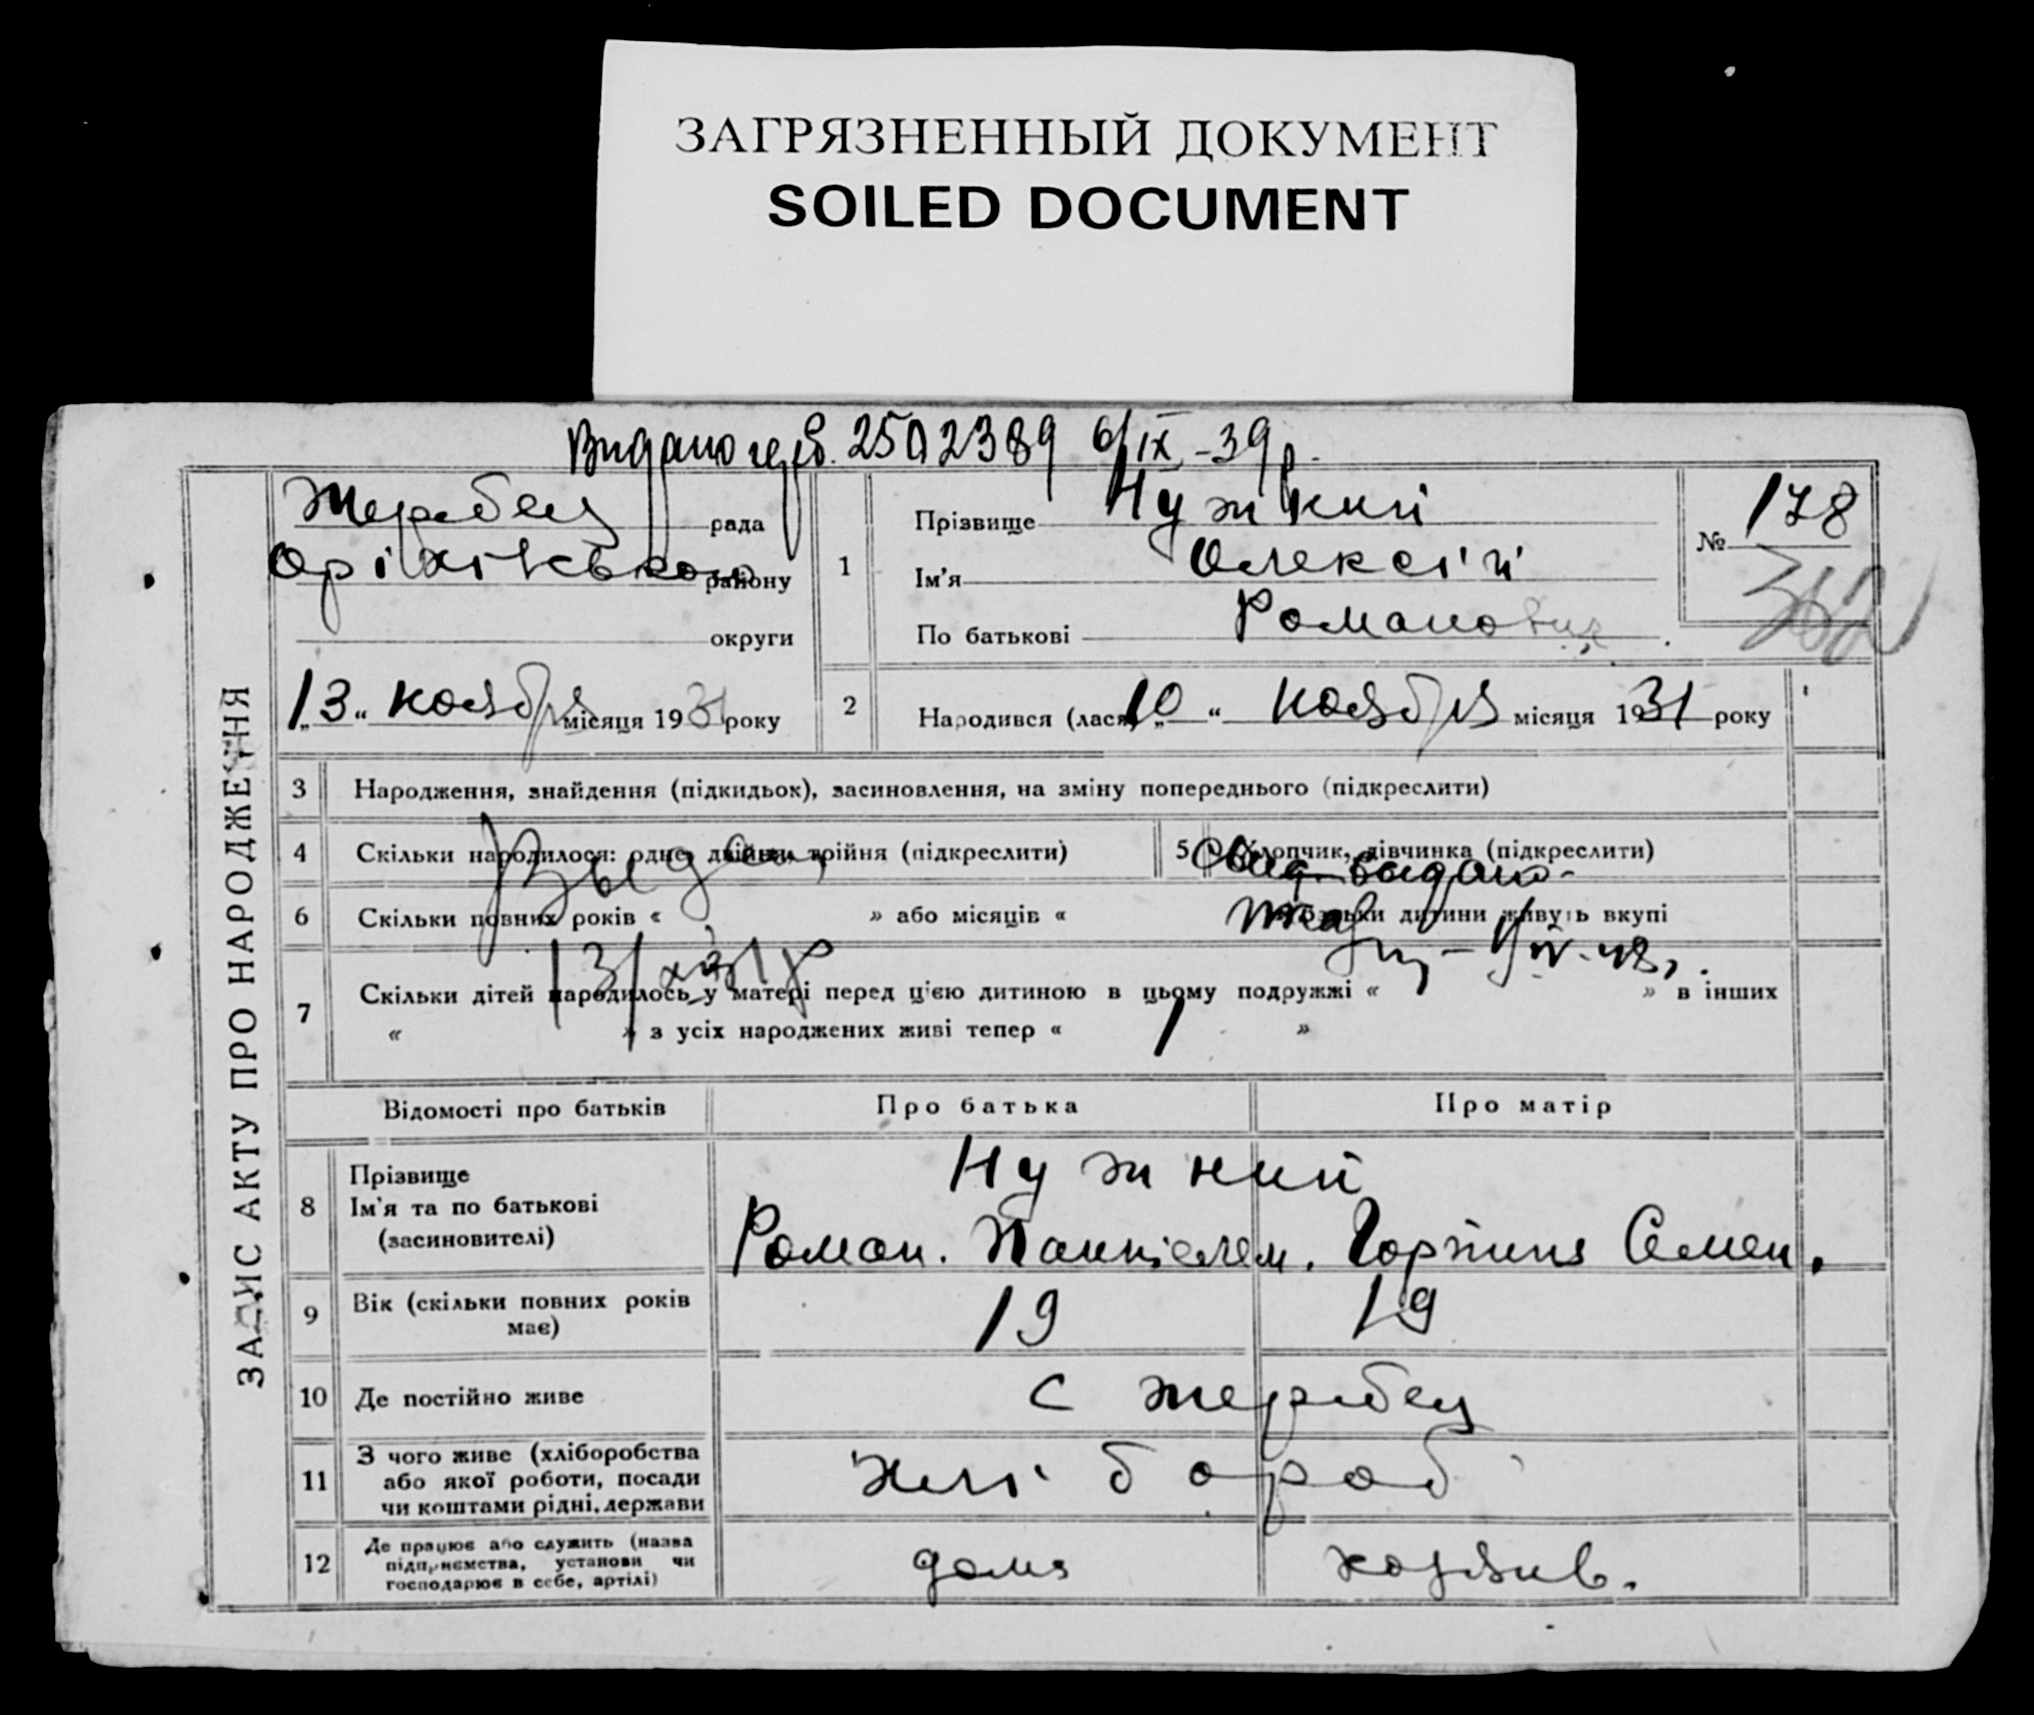 ЗАГРЯЗНЕННЫЙ ДОКУМЕНТ
SOILED DOCUMENT
Видано 2502389 6/IX-39р.
ЗАПИС АКТУ ПРО НАРОДЖЕННЯ
Жеребец рада
Оріхівського району
округи
13 " ноября місяця 1931 року
1
Прізвище Нужний
Ім'я Олексій
По батькові Романович
№ 178
362
2 Народився (лася) „10" ноября місяця 1931 року
3 Народження, знайдення (підкидьок), засиновлення, на зміну попереднього (підкреслити)
4 Скільки народилося: одне, двійни, трійня (підкреслити)
5 Хлопчик, дівчинка (підкреслити)
Свид. видано
6 Скільки повних років « » або місяців « батьки дитини живуть вкупі
13/XI 31р
7 Скільки дітей народилось у матері перед цією дитиною в цьому подружжі « » в інших
« » з усіх народжених живі тепер « 1 »
Відомості про батьків Про батька Про матір
8 Прізвище
Ім'я та по батькові
(засиновителі)
Нужний
Роман. Горпина Семен.
9 Вік (скільки повних років
має)
19 19
10 Де постійно живе с Жеребец
11 З чого живе (хліборобства
або якої роботи, посади
чи коштами рідні, держави
хлібороб
12 Де працює або служить (назва
підприємства, установи чи
господарює в себе, артілі)
дома